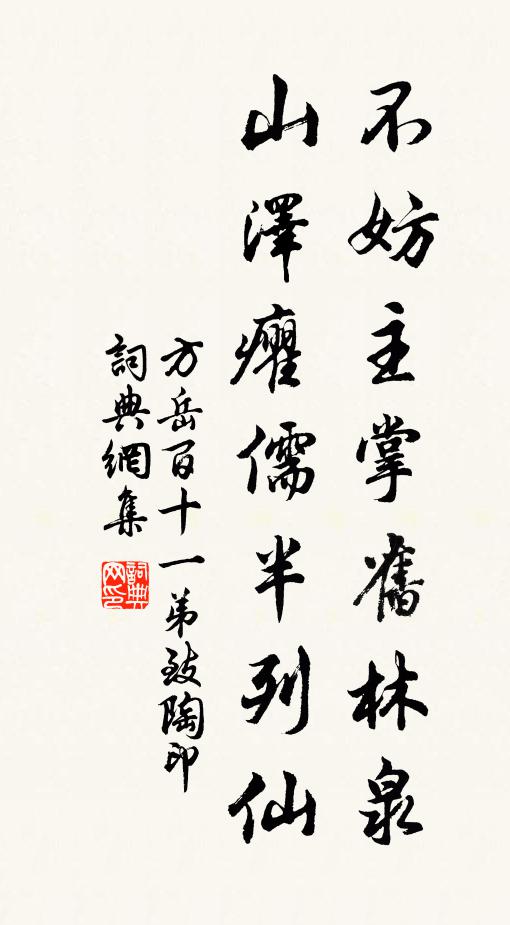 不妨主掌舊林泉
山澤癯儒半列仙
方岳百十一弟致陶印
詞典網集
詞典网印